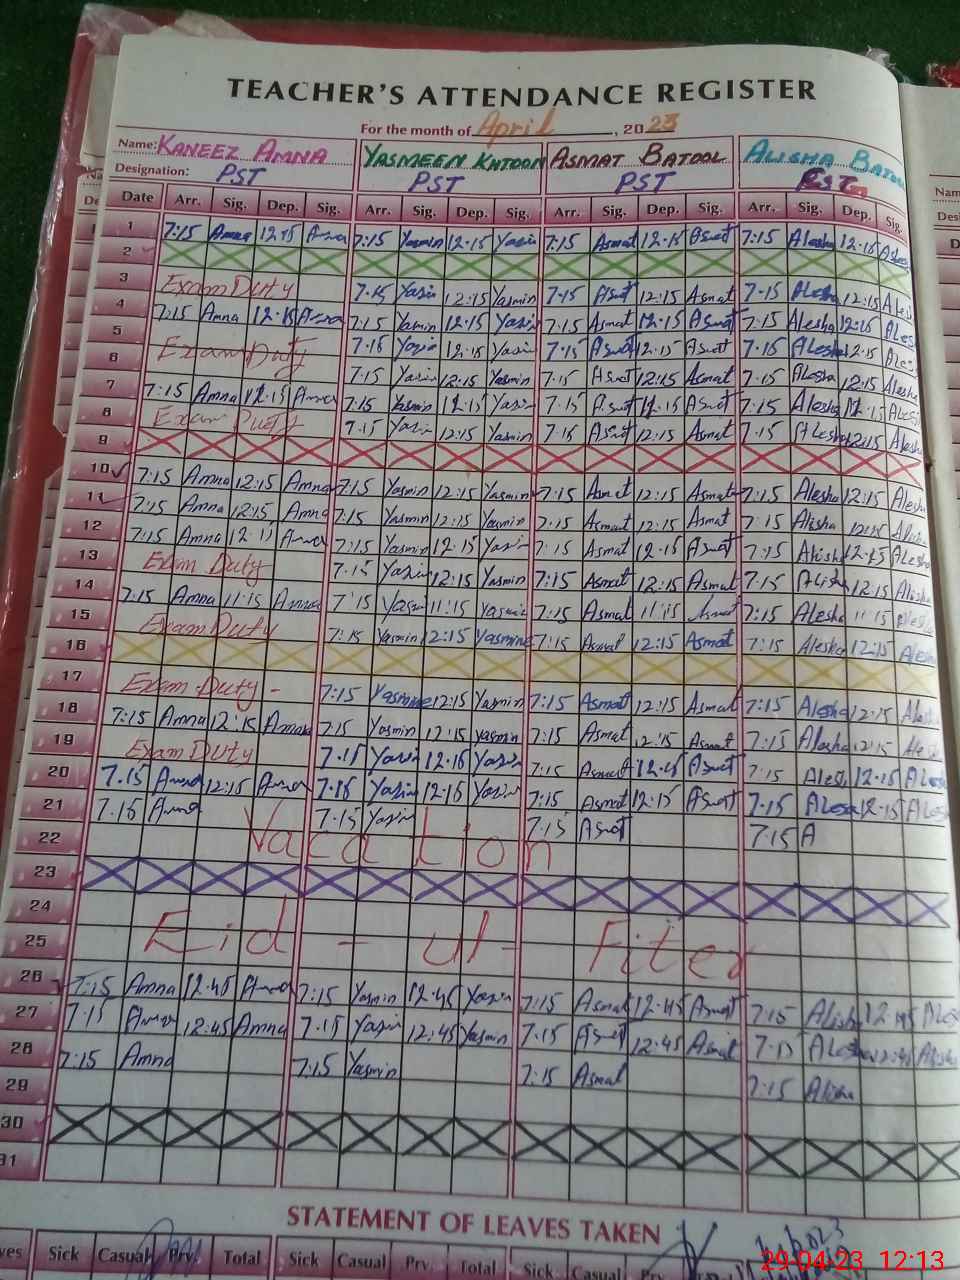 TEACHER'S ATTENDANCE REGISTER
For the month of April, 2023
Name: KANEEZ AMNA YASMEEN KHTOON ASMAT BATOOL ALISHA BATOOL
Designation: PST PST PST PST
Date Arr. Sig. Dep. Sig. Arr. Sig. Dep. Sig. Arr. Sig. Dep. Sig. Arr. Sig. Dep. Sig.
1 7:15 Amna 12:15 Amna 7:15 Yasmin 12:15 Yasin 7:15 Asmat 12:15 Asmat 7:15 Alesha 12:15
2
3 Exam Duty 7:15 Yasin 12:15 Yasmin 7:15 Asmat 12:15 Asmat 7:15 Alesha 12:15
4 7:15 Amna 12:15 Amna 7:15 Yasmin 12:15 Yasin 7:15 Asmat 12:15 Asmat 7:15 Alesha 12:15
5 Exam Duty 7:15 Yasin 12:15 Yasin 7:15 Asmat 12:15 Asmat 7:15 Alesha 12:15
6 7:15 Yasin 12:15 Yasmin 7:15 Asmat 12:15 Asmat 7:15 Alesha 12:15 Alesha
7 7:15 Amna 12:15 Amna 7:15 Yasmin 12:15 Yasin 7:15 Asmat 12:15 Asmat 7:15 Alesha 12:15
8 Exam Duty 7:15 Yasin 12:15 Yasmin 7:15 Asmat 12:15 Asmat 7:15 Alesha 12:15 Alesha
9
10 7:15 Amna 12:15 Amna 7:15 Yasmin 12:15 Yasmin 7:15 Asmat 12:15 Asmat 7:15 Alesha 12:15 Alesha
11 7:15 Amna 12:15 Amna 7:15 Yasmin 12:15 Yasmin 7:15 Asmat 12:15 Asmat 7:15 Alisha 12:15 Alisha
12 7:15 Amna 12:15 Amna 7:15 Yasmin 12:15 Yasin 7:15 Asmat 12:15 Asmat 7:15 Alisha 12:15 Alesha
13 Exam Duty 7:15 Yasin 12:15 Yasmin 7:15 Asmat 12:15 Asmat 7:15 Alisha 12:15 Alisha
14 7:15 Amna 11:15 Amna 7:15 Yasmin 11:15 Yasmin 7:15 Asmat 11:15 Asmat 7:15 Alesha 11:15 Alesha
15 Exam Duty 7:15 Yasmin 12:15 Yasmine 7:15 Asmat 12:15 Asmat 7:15 Alesha 12:15 Alesha
16
17 Exam Duty - 7:15 Yasmine 12:15 Yasmin 7:15 Asmat 12:15 Asmat 7:15 Alesha 12:15 Alesha
18 7:15 Amna 12:15 Amna 7:15 Yasmin 12:15 Yasmin 7:15 Asmat 12:15 Asmat 7:15 Alesha 12:15
19 Exam Duty 7:15 Yasin 12:15 Yasin 7:15 Asmat 12:15 Asmat 7:15 12:15
20 7:15 Amna 12:15 Amna 7:15 Yasin 12:15 Yasin 7:15 Asmat 12:15 Asmat 7:15 12:15
21 7:15 Amna 7:15 Yasin 7:15 Asmat 7:15 A
22 Vacation
23
24 Eid - ul - Fiter
25
26 7:15 Amna 12:45 Amna 7:15 Yasmin 12:45 Yasin 7:15 Asmat 12:45 Asmat 7:15 Alisha 12:45
27 7:15 Amna 12:45 Amna 7:15 Yasin 12:45 Yasmin 7:15 Asmat 12:45 Asmat 7:15 Alesha 12:45 Alisha
28 7:15 Amna 7:15 Yasmin 7:15 Asmat 7:15 Alisha
29
30
31
STATEMENT OF LEAVES TAKEN
Sick Casual Prv. Total Sick Casual Prv.
29-04-23 12:13